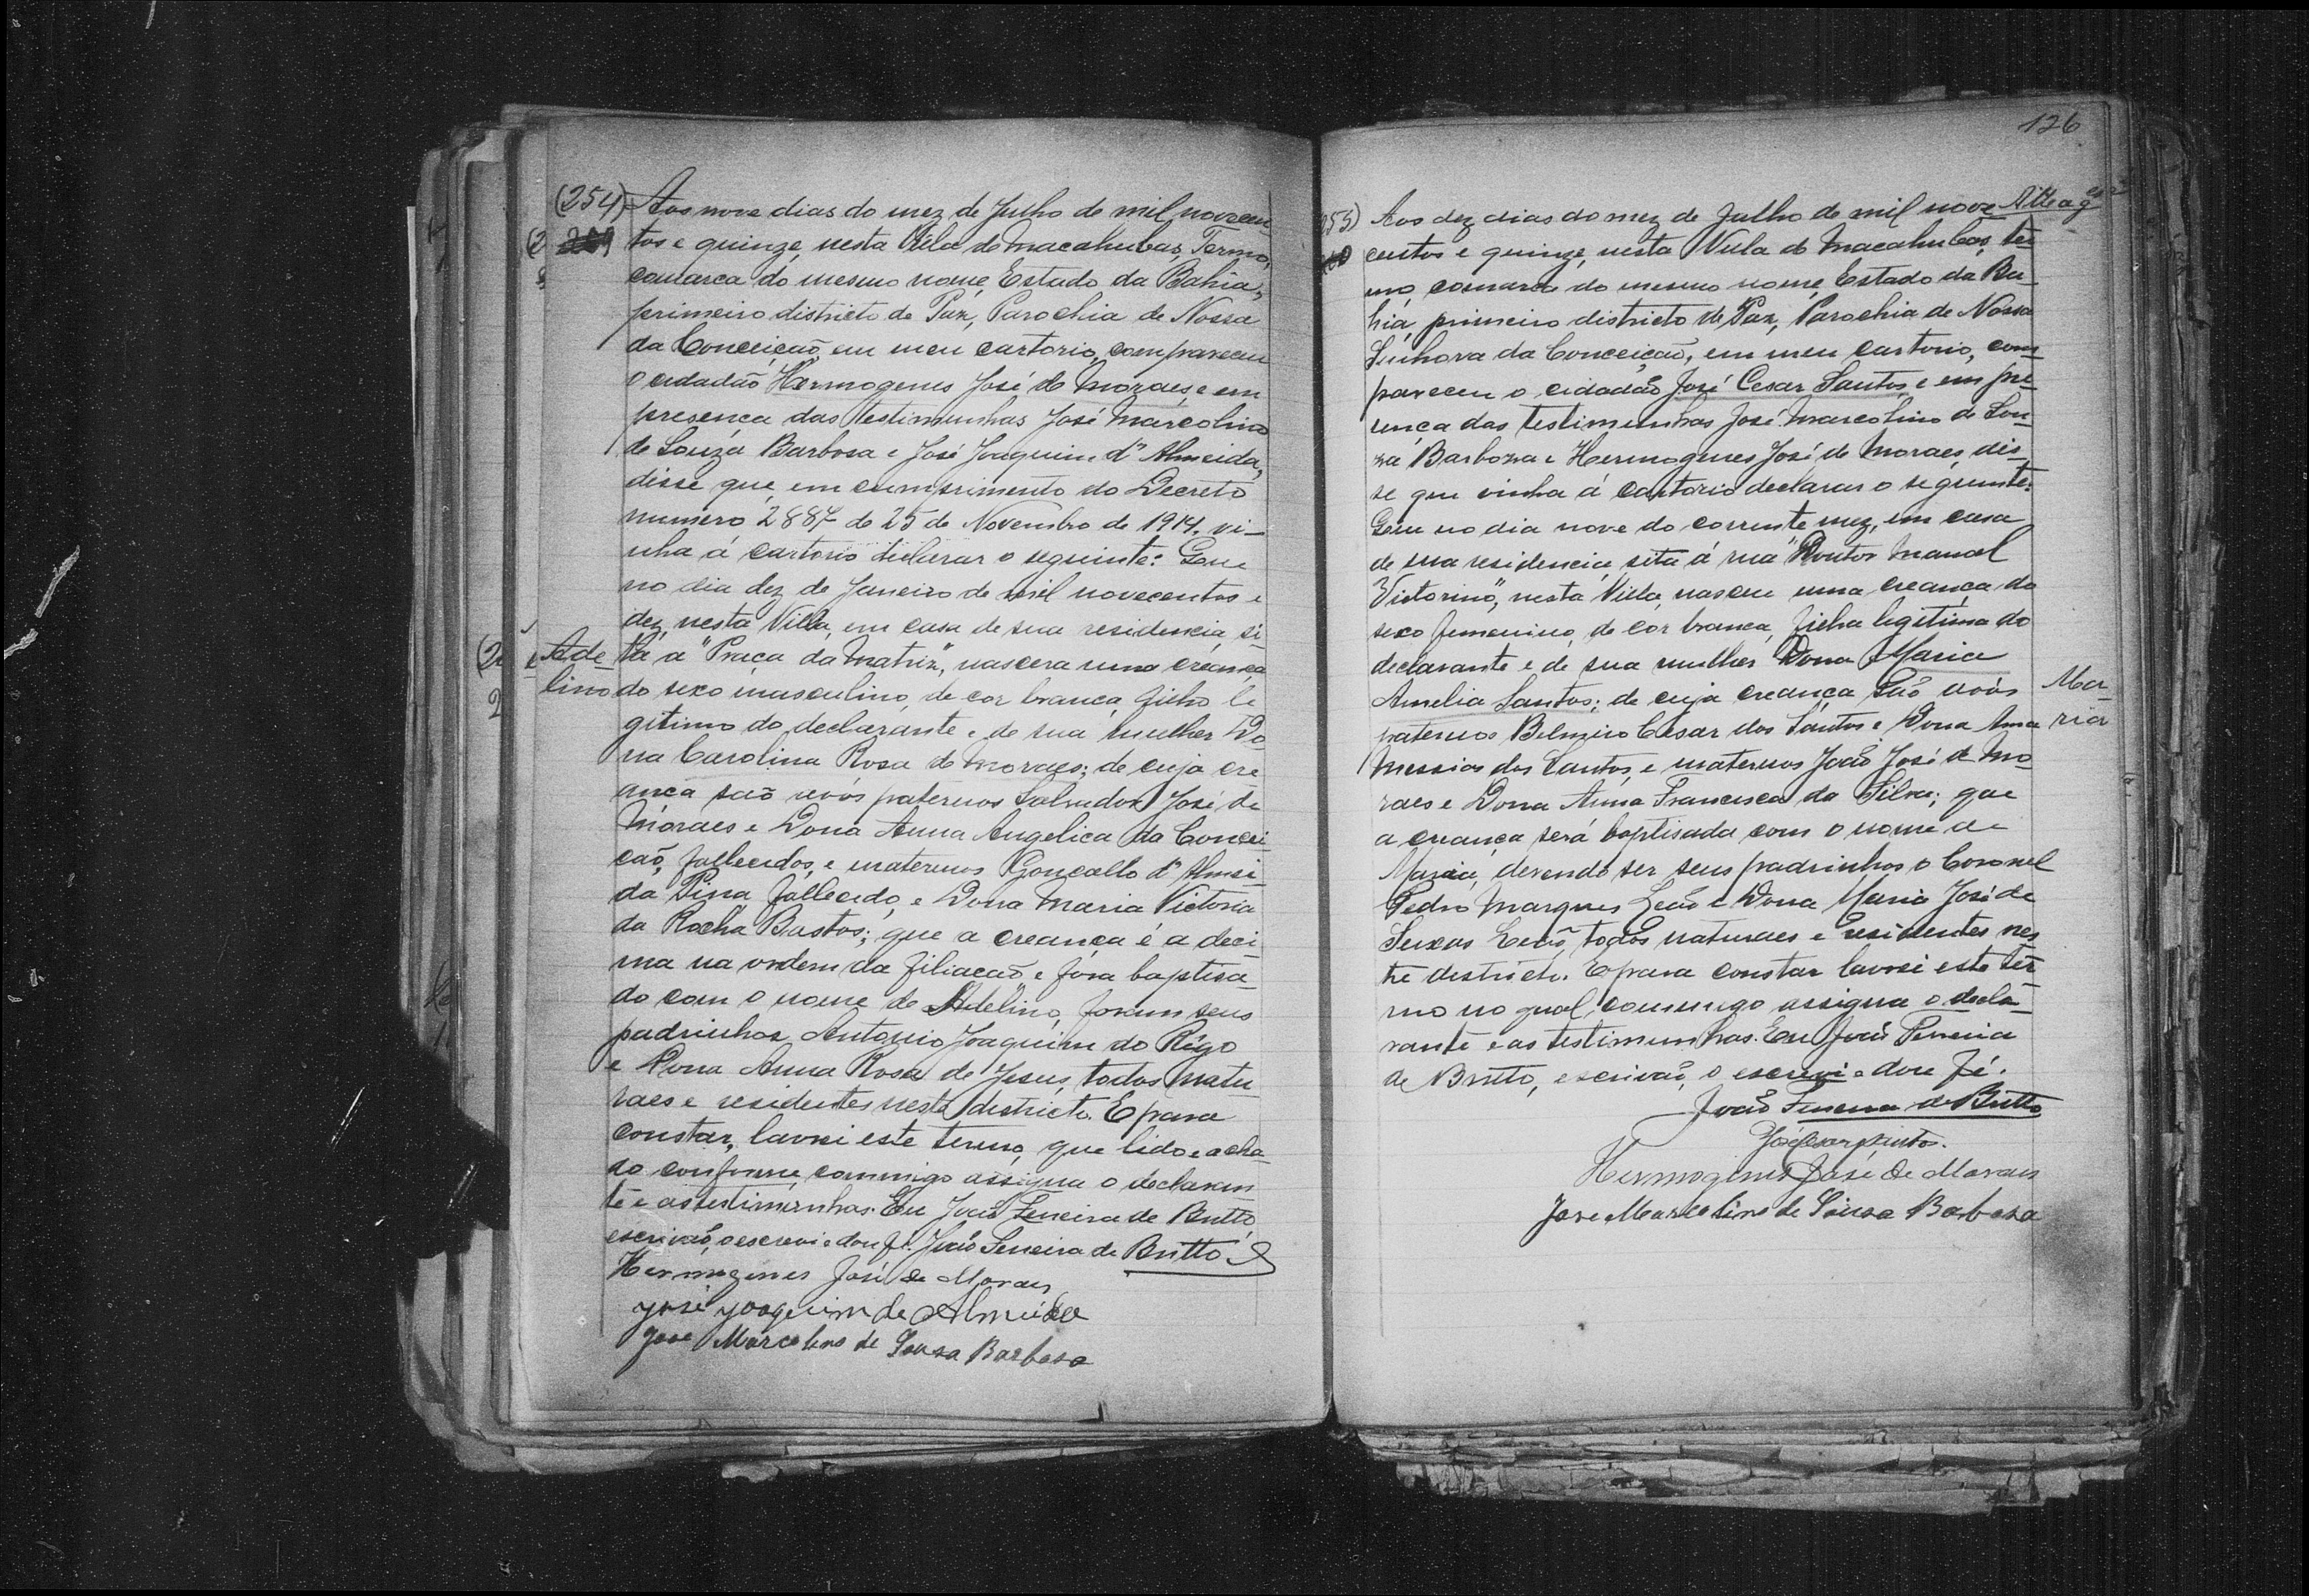 (254) Aos nove dias do mez de Julho de mil novecen
tos e quinze, nesta Villa de Macahubas, Termo,
comarca do mesmo nome, Estado da Bahia,
primeiro districto de Paz, Parochia de Nossa
da Conceição, em meu cartorio, compareceu
o cidadão Hermogenes José de Moraes, e em
presença das testimunhas José Marcolino
de Souza Barbosa e José Joaquim d'Almeida,
disse que, em cumprimento do Decreto
numero 2887 de 25 de Novembro de 1914, vi-
nha á cartorio declarar o seguinte: Que
no dia dez de Janeiro de mil novecentos e
dez, nesta Villa, em casa de sua residencia, si
Ade- ta a "Praça da Matriz", nascera uma creança
lino do sexo masculino, de cor branca, filho le
gitimo do declarante e de sua mulher Do-
na Carolina Rosa de Moraes; de cuja cre
ança são avós paternos Salvador José de
Moraes e Dona Anna Angelica da Concei-
ção, fallecidos, e maternos Gonçallo d'Almei-
da Pina, fallecido, e Dona Maria Victoria
da Rocha Bastos; que a creança é a deci-
ma na ordem da filiação e fora baptisa-
do com o nome de Adelino, foram seus
padrinhos Antonio Joaquim do Rêgo
e Dona Anna Rosa de Jesus, todos natu
raes e residentes neste districto. E para
constar, lavrei este termo, que lido e acha-
do conforme, commigo assigna o declaran
te e as testimunhas. Eu João Ferreira de Britto,
escrivão, o escrevi e dou fé. João Ferreira de Britto
Hermogenes José de Moraes
José Joaquim de Almeida
Jose Marcolino de Sousa Barbosa
126
Aos dez dias do mez de Julho de mil nove
centos e quinze, nesta Villa de Macahubas, ter-
mo, comarca do mesmo nome, Estado da Ba-
hia, primeiro districto de Paz, Parochia de Nossa
Senhora da Conceição, em meu cartorio, com-
pareceu o cidadão José Cesar Santos, e em pre-
sença das testimunhas José Marcolino de Sou-
za Barboza e Hermogenes José de Moraes, dis-
se que vinha á cartorio declarar o seguinte:
Que no dia nove do corrente mez, em casa
de sua residencia, sita á rua "Doutor Manoel
Victorino", nesta Villa, nasceu uma creança do
sexo femenino, de cor branca, filha legitima do
declarante e de sua mulher Dona Maria
Amelia Santos; de cuja creança são avós Ma-
paternos Belmiro Cesar dos Santos e Dona Anna ria
Messias dos Santos, e maternos João José de Mo-
raes e Dona Anna Francisca da Silva; que
a creança será baptisada com o nome de
Maria, devendo ser seus padrinhos o Coronel
Pedro Marques Leão e Dona Maria José de
Seixas Leão, todos naturaes e residentes nes-
te districto. E para constar lavrei este ter-
mo no qual, commigo assigna o decla-
rante e as testimunhas. Eu João Ferreira
de Britto, escrivão, o escrevi e dou fé.
João Ferreira de Britto
José Cesar Santos.
Hermogenes José de Moraes
Jose Marcolino de Sousa Barbosa